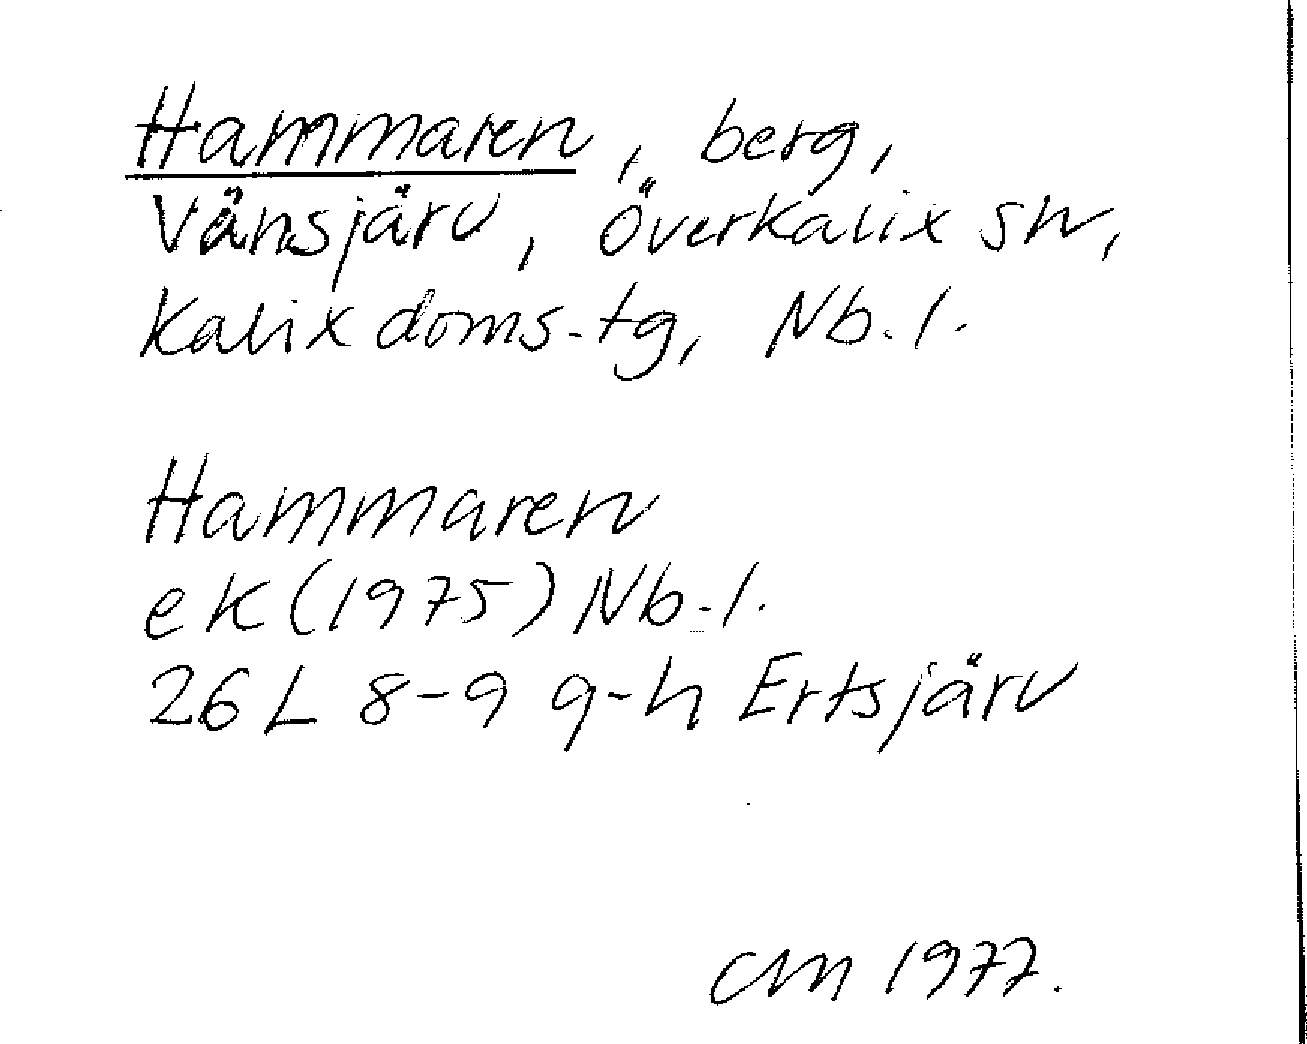 Hammaren, berg,
Vänsjärv, Överkalix sn,
Kalix doms-tg, Nb.l.
Hammaren
ek (1975) Nb.l.
26 L 8-9 g-h Ertsjärv
CM 1977.